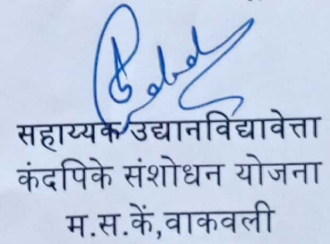 सहाय्यक उद्यानविद्यावेत्ता
कंदपिके संशोधन योजना
म.स.कें,वाकवली